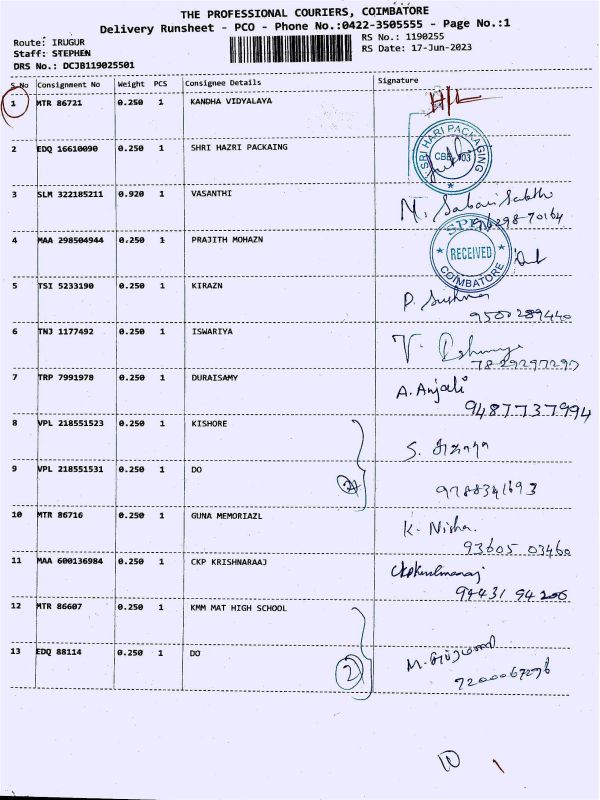 THE PROFESSIONAL COURIERS, COIMBATORE
Delivery Runsheet - PCO - Phone No.:0422-3505555 - Page No.:1
Route: IRUGUR
Staff: STEPHEN
DRS No.: DCJB119025501
RS No.: 1190255
RS Date: 17-Jun-2023
S.No Consignment No Weight PCS Consignee Details Signature
1 MTR 86721 0.250 1 KANDHA VIDYALAYA H/L
2 EDQ 16610090 0.250 1 SHRI HAZRI PACKAING
SRI HARI PACKAGING
3 SLM 322185211 0.920 1 VASANTHI
4 MAA 298504944 0.250 1 PRAJITH MOHAZN
RECEIVED
COIMBATORE
5 TSI 5233190 0.250 1 KIRAZN
9500289440
6 TNJ 1177492 0.250 1 ISWARIYA
7829297297
7 TRP 7991978 0.250 1 DURAISAMY A. Anjali
9487737994
8 VPL 218551523 0.250 1 KISHORE
9 VPL 218551531 0.250 1 DO 2
9788341693
10 MTR 86716 0.250 1 GUNA MEMORIAZL K. Nisha.
93605 03460
11 MAA 600136984 0.250 1 CKP KRISHNARAAJ
94431 94206
12 MTR 86607 0.250 1 KMM MAT HIGH SCHOOL
13 EDQ 88114 0.250 1 DO 2
7200067296
10 1